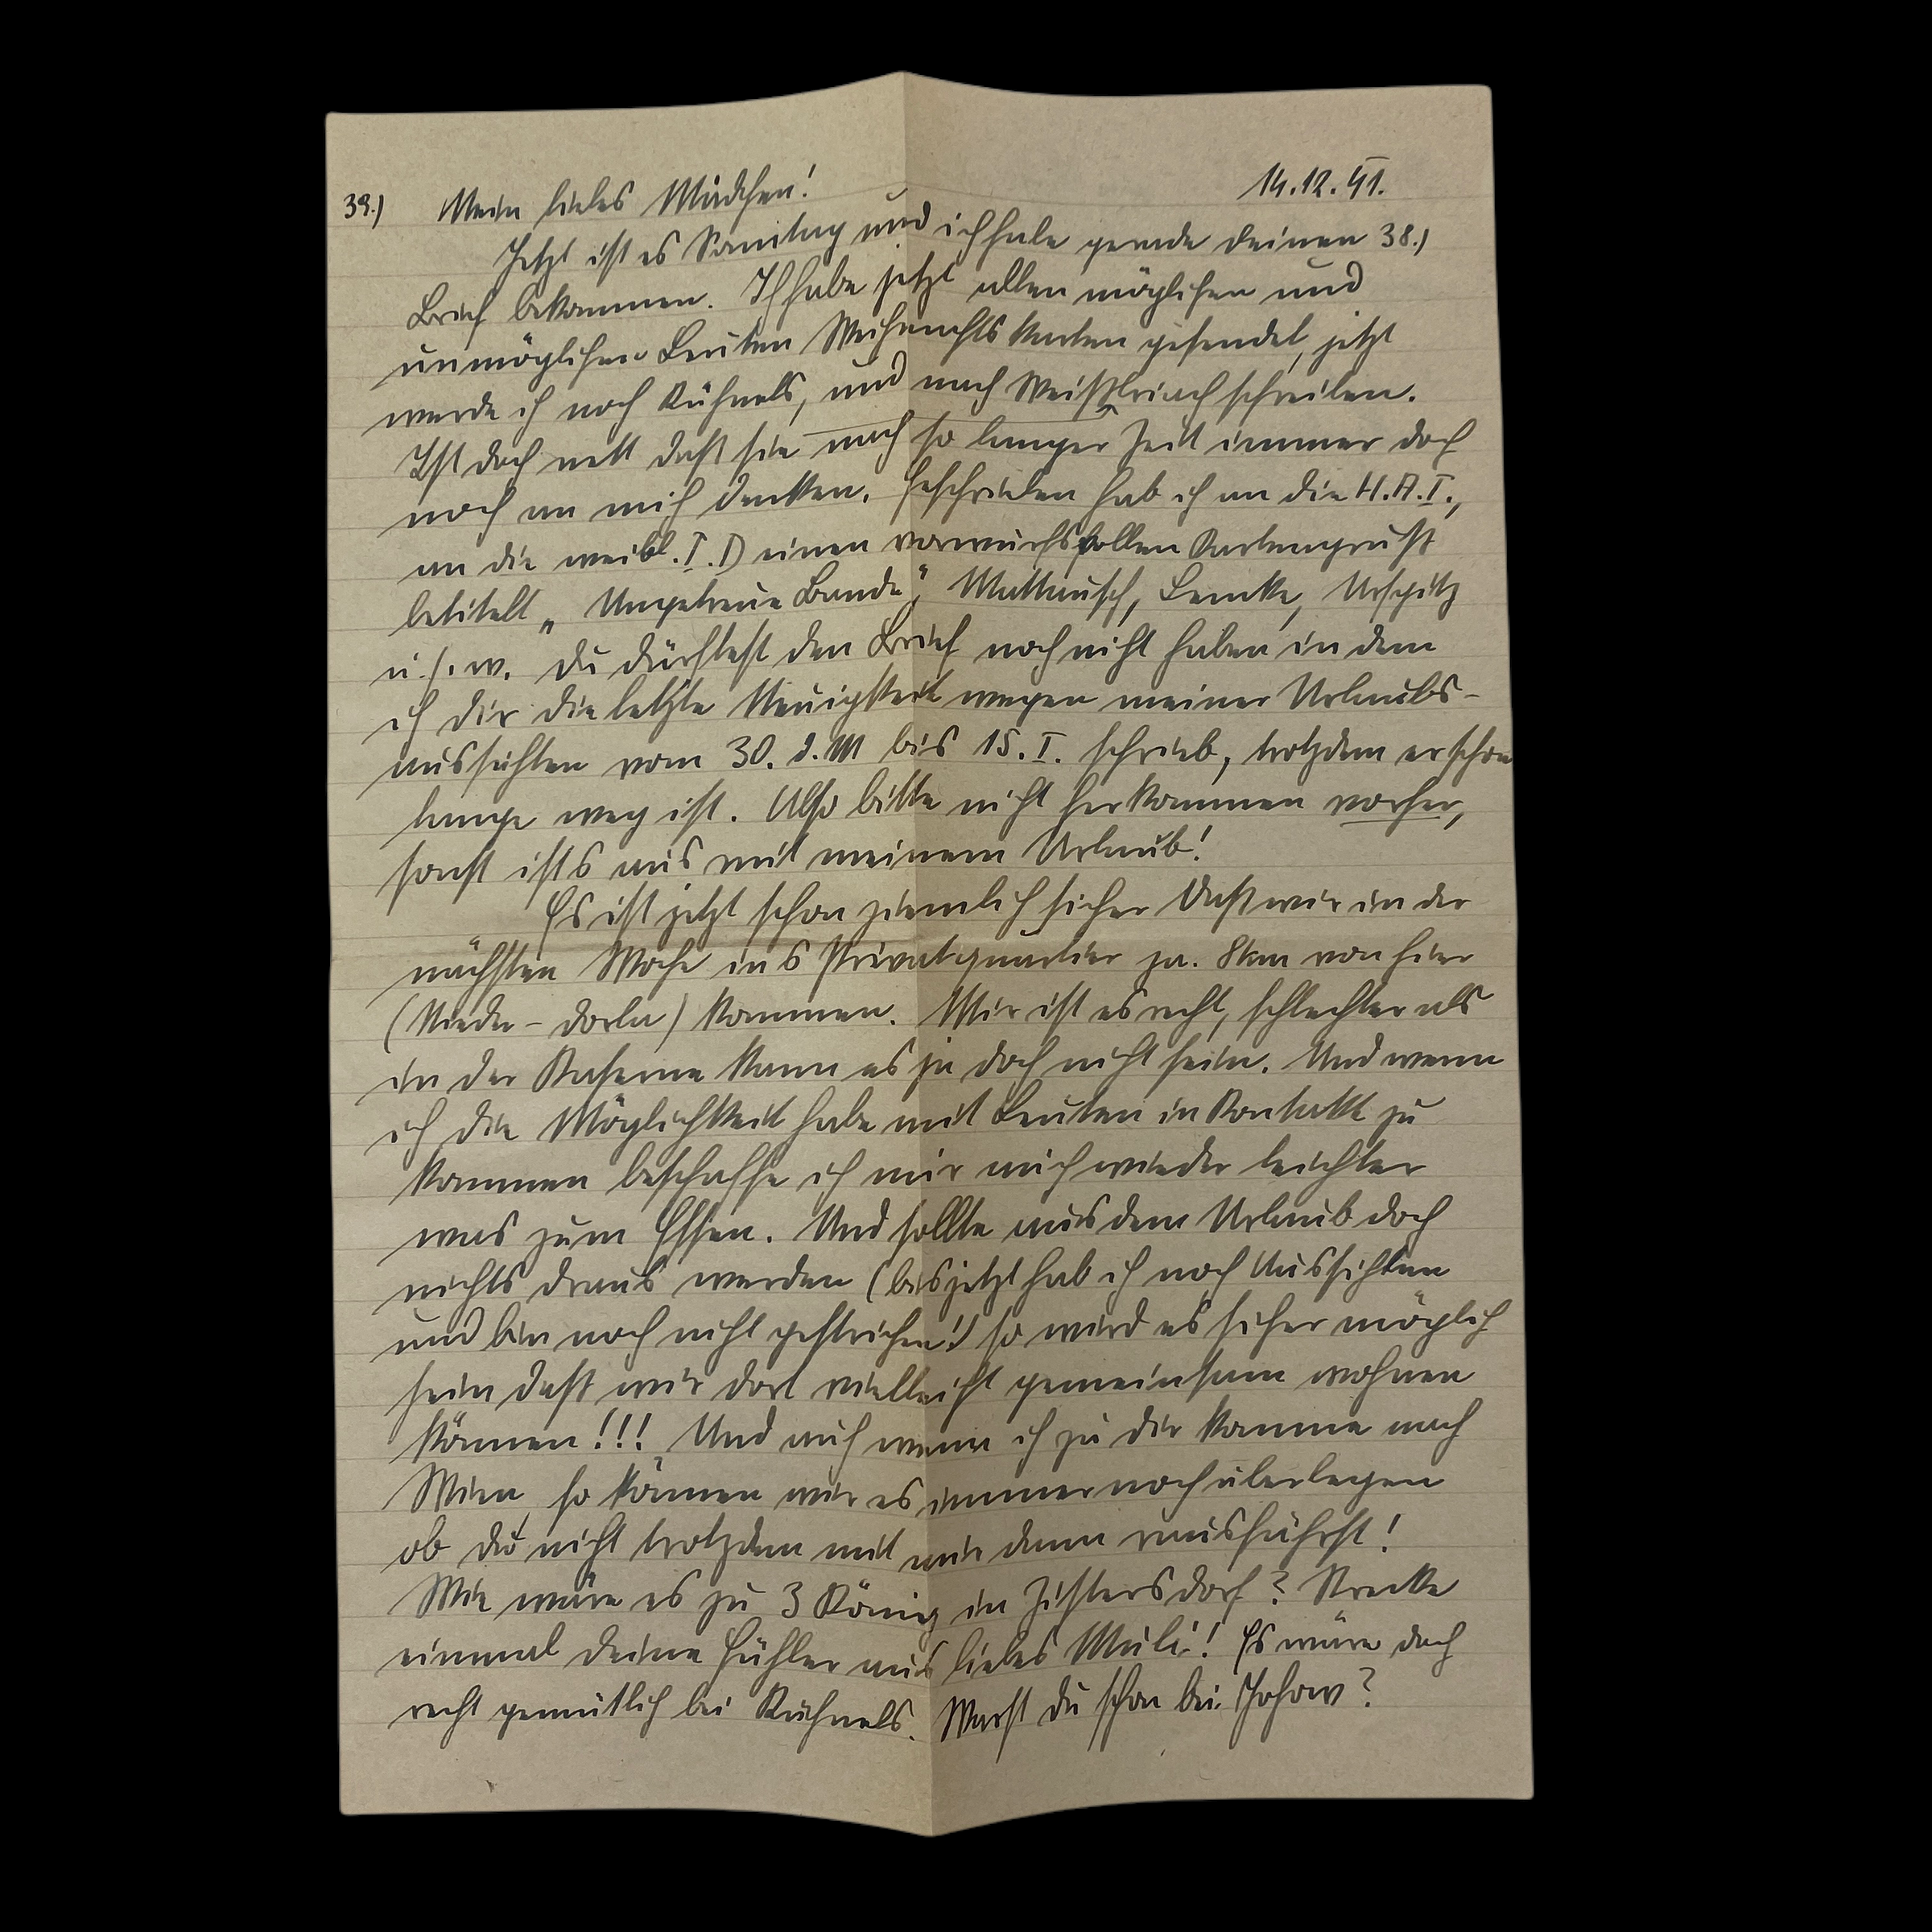 39.) Mein liebes Mädchen! 14.12.41.
Jetzt ist es Sonntag und ich habe gerade deinen 38.)
Brief bekommen. Ich habe jetzt allen möglichen und
unmöglichen Leuten Weihnachtskarten gesendet, jetzt
werde ich noch Kühnels, und nach Weißbriach schreiben.
Ist doch nett daß sie nach so langer Zeit immer doch
noch an mich denken. Geschrieben hab ich an die H.A.I.,
an die weibl. I.D einen vorwurfsvollen Kartengruß
betitelt „Ungetreue Bande", Mattausch, Lemke, Urspitz
u.s.w. Du dürftest den Brief noch nicht haben in dem
ich dir die letzte Neuigkeit wegen meiner Urlaubs-
aussichten vom 30. d.M bis 15.I. schrieb, trotzdem er schon
lange weg ist. Also bitte nicht herkommen vorher,
sonst ists aus mit meinem Urlaub!
Es ist jetzt schon ziemlich sicher daß wir in der
nächsten Woche ins Privatquartier za. 8km von hier
(Nieder-dorla) kommen. Mir ist es recht, schlechter als
in der Kaserne kann es ja doch nicht sein. Und wenn
ich die Möglichkeit habe mit Leuten in Kontakt zu
kommen beschaffe ich mir auch wieder leichter
was zum Essen. Und sollte aus dem Urlaub doch
nichts draus werden (bis jetzt hab ich noch Aussichten
und bin noch nicht gestrichen!) so wird es sicher möglich
sein daß wir dort vielleicht gemeinsam wohnen
können!!! Und auch wenn ich zu dir komme nach
Wien so können wir es immer noch überlegen
ob du nicht trotzdem mit mir dann rausfährst!
Wie wäre es zu 3 König in Zistersdorf? Strecke
einmal deine Fühler aus liebes Muli! Es wäre doch
recht gemütlich bei Kühnels. Warst du schon bei